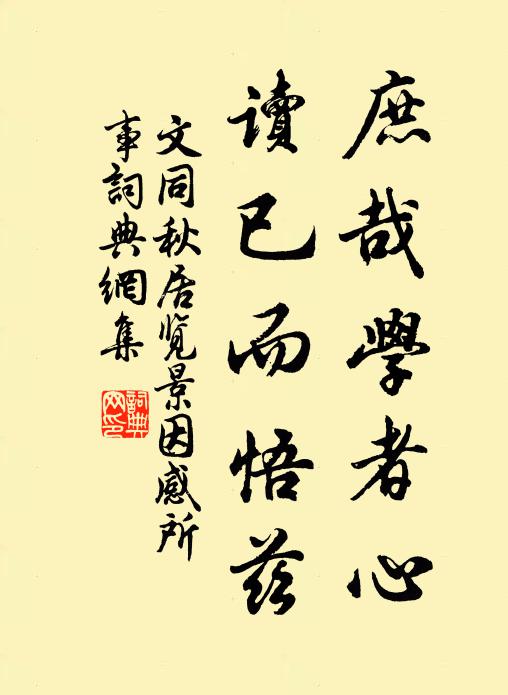 庶哉學者心
讀已而悟茲
文同秋居览景因感所
事詞典網集
詞典
网印